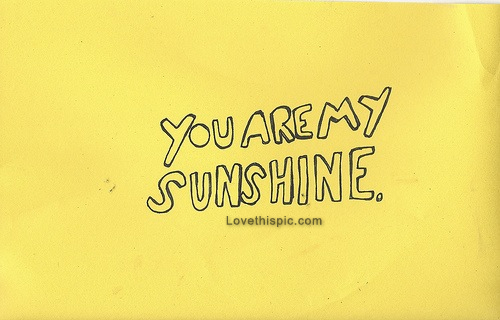 YOU ARE MY
SUNSHINE.
Lovethispic.com